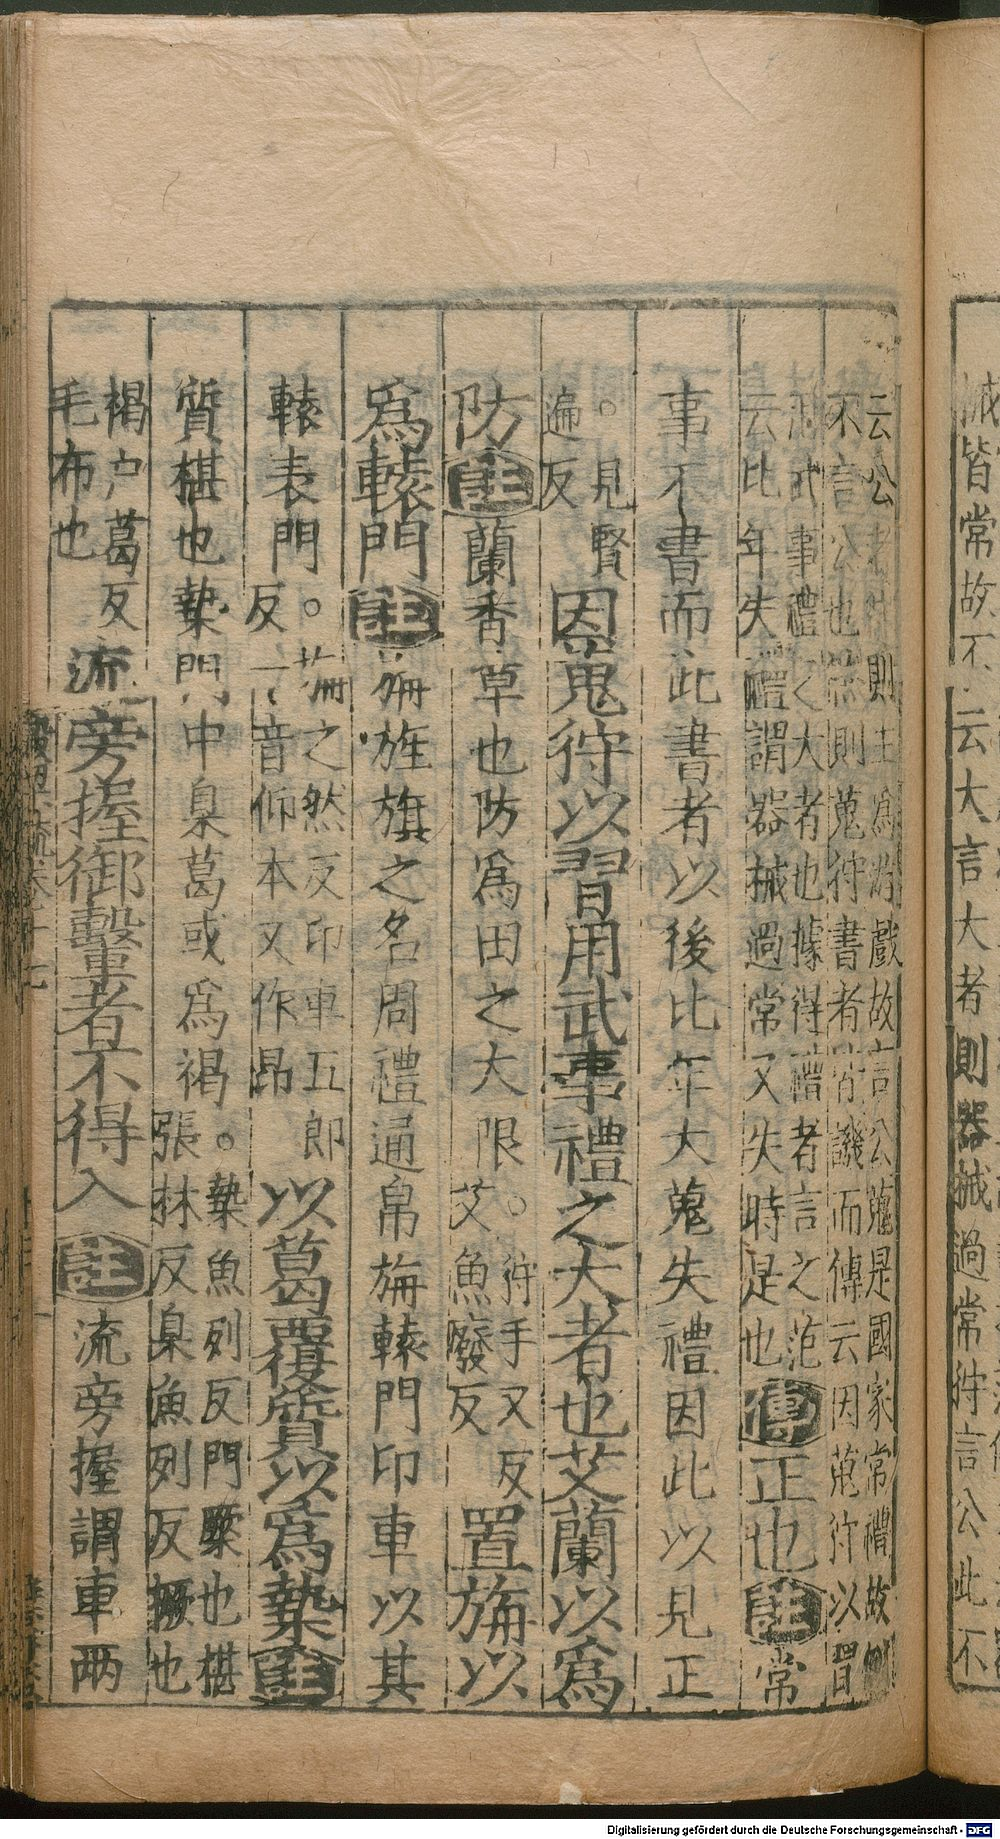 云公則主為游戲故言公蒐是國家常禮故
不言公也然則蒐狩書者皆譏而傳云因蒐狩以習
用武事禮之大者也據得禮者言之范
云比年失禮謂器械過常又失時是也
傳正也註常
事不書而此書者以後比年大蒐失禮因此以見正
。見賢
遍反
因蒐狩以習用武事禮之大者也艾蘭以為
防註蘭香草也防為田之大限
。狩手又反
艾魚廢反
置旃以
為轅門註旃旌旗之名周禮通帛旃轅門卬車以其
轅表門
。旃之然反卬車五郎
反一音仰本又作昂
以葛覆質以為槷註
質椹也槷門中臬葛或為褐
。槷魚列反門橜也椹
張林反臬魚列反橛也
褐戶葛反
毛布也
流旁握御轚者不得入註流旁握謂車兩
穀梁疏卷十七
械皆常故不云大言大者則器械過常狩言公此不
Digitalisierung gefördert durch die Deutsche Forschungsgemeinschaft - DFG